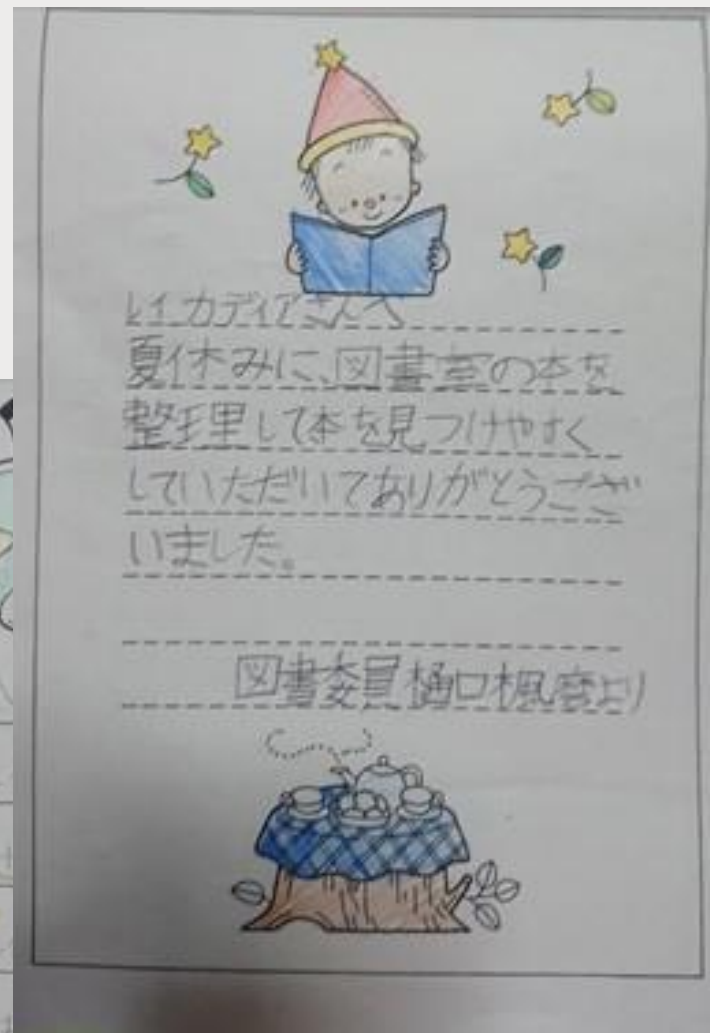 レイカディアさんへ
夏休みに、図書室の本を
整理して本を見つけやすく
していただいてありがとうござ
いました。
図書委員樋口楓より